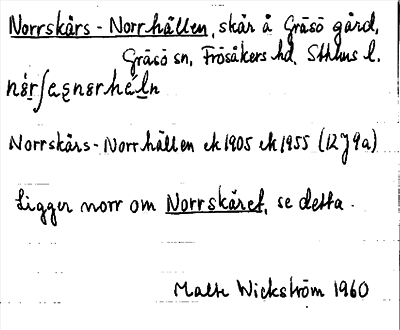 Norrskårs-Norrhällen, skär å Gräsö gård,
Gräsö sn, Frösåkers hd, Sthlms l.
Norrskårs-Norrhällen ek 1905 ek 1955 (12J9a)
Ligger norr om Norrskäret, se detta.
Malte Wickström 1960